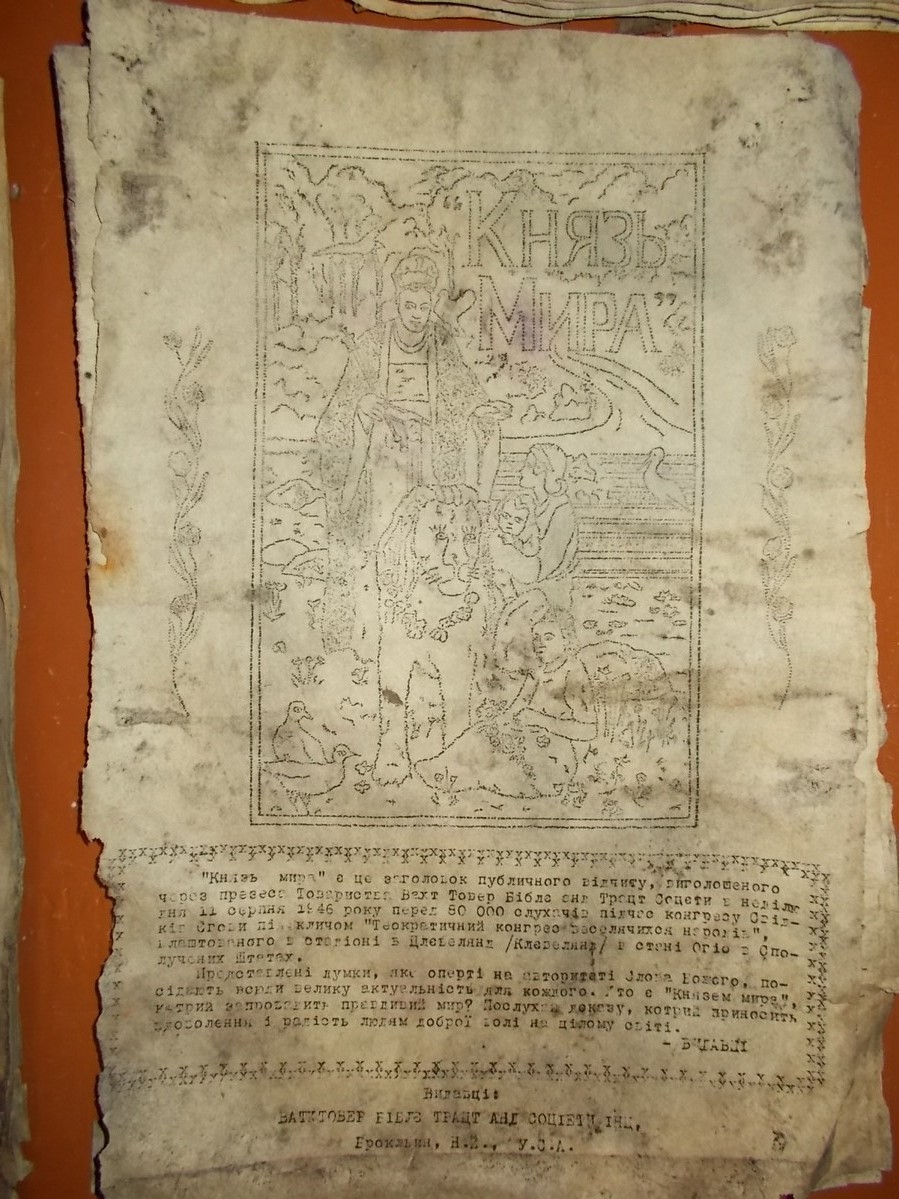 "Князь
Мира"
"Князь мира" є це заголовок публичного відчиту, виголошеного
через презеса Товариства Вахт Товер Бібле анд Трацт Соцети в неділю
дня 11 серпня 1946 року перед 80 000 слухачів підчас конгресу Свід-
ків Єгови під кличом "Теократичний конгрес веселячихся народів",
влаштованого в стадіоні в Длевелянд /Клевелянд/ в стані Огіо в Спо-
лучених Штатах.
Представлені думки, які оперті на авторитеті Слова Божого, по-
сідають всюди велику актуальність для кожного. Хто є "Князем мира",
котрий запровадить правдивий мир? Послухай доказу, котрий приносить
вдоволення і радість людям доброї волі на цілому світі.
- ВИДАВЦІ
Видавці:
ВАТХТОВЕР БІБЛЕ ТРАЦТ АНД СОЦІЕТИ, ІНЦ,
Броклын, Н.Й., У.С.А.